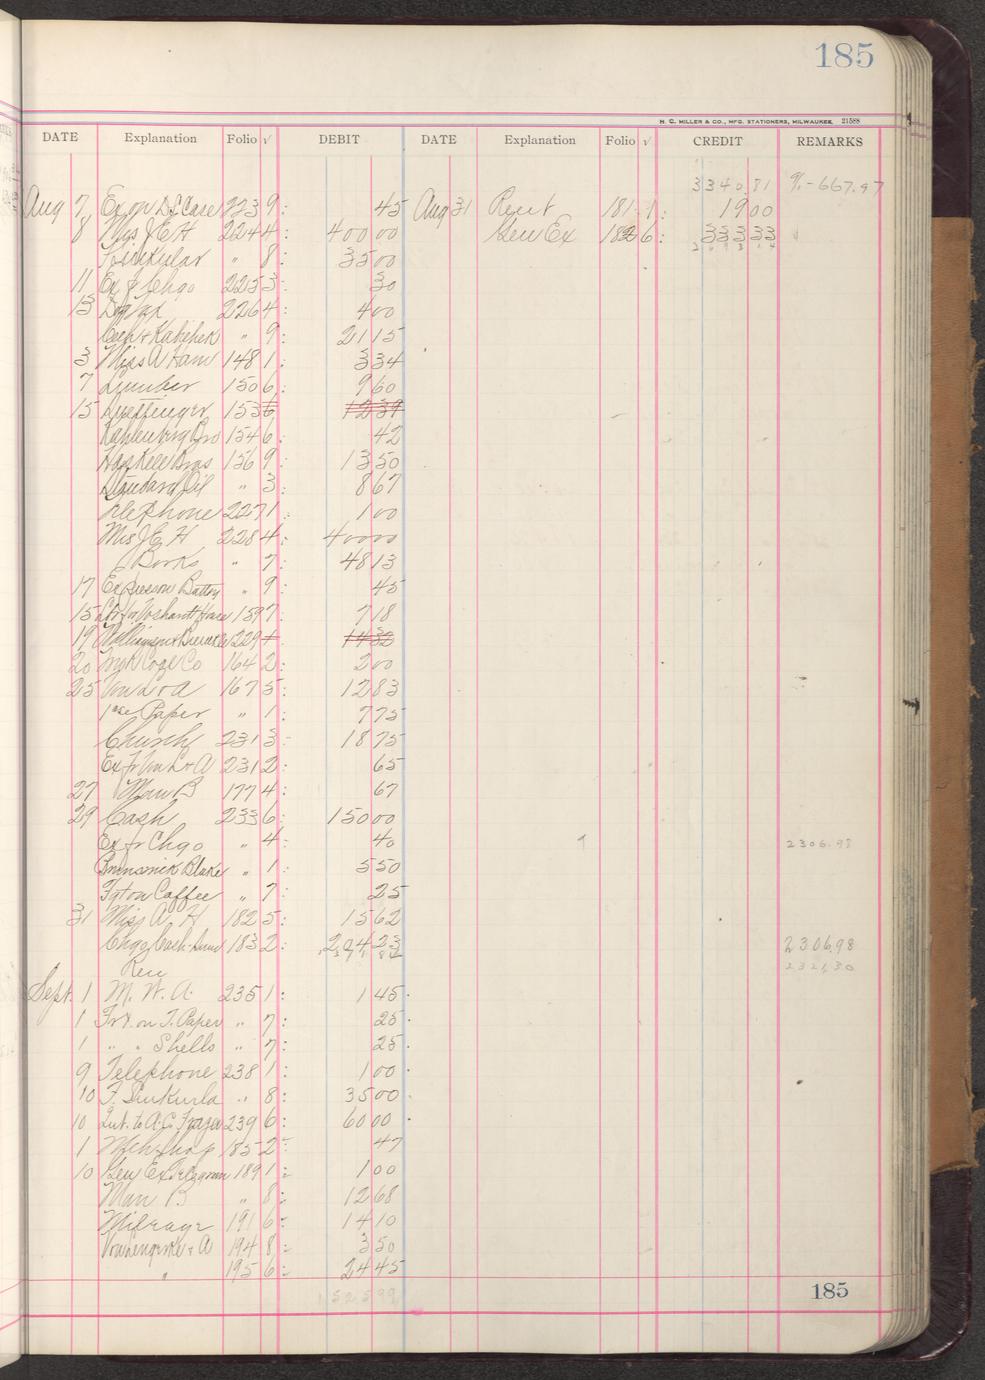 185
H. C. MILLER & CO., MFG. STATIONERS, MILWAUKEE, 21588
DATE Explanation Folio √ DEBIT DATE Explanation Folio √ CREDIT REMARKS
3340.81 %-667.97
Aug 7 Ex on D.S. Case 223 9: 45 Aug 31 Rent 181 1: 19 00
8 Mrs J E H 224 4: 400 00 Gen Ex 182 6: 333 33
" 8: 35 00
11 Ex fr Chgo 225 3: 30
13 Dog Tax 226 4: 4 00
" 9: 21 15
3 Miss A Ham 148 1: 3 34
7 Lumber 150 6: 9 60
15 153 6 12 39
Kahlenberg Bro 154 6: 42
Haskell Bros 156 9: 13 50
Standard Oil " 3: 8 67
Telephone 227 1: 1 00
Mrs J. E. H 228 4: 400 00
Books " 7: 48 13
17 Ex " 9: 45
15 159 7: 7 18
19 229 14 32
20 Coal Co 164 2: 2 00
25 Von L & A 167 5: 12 83
Paper " 1: 7 75
Church 231 3: 18 75
Ex fr Von L & A 231 2: 65
27 Man B 177 4: 67
29 Cash 233 6: 150 00
Ex fr Chgo " 4: 40 2306.98
Brunswick Blake " 1: 5 50
Fgt on Coffee " 7: 25
31 Miss A. H 182 5: 15 62
Chgo Cash 183 2: 204 23 2306.98
2321.30
Sept. 1 M. W. A. 235 1: 1 45
1 Frt. on T. Paper " 7: 25
1 " " Shells " 7: 25
9 Telephone 238 1: 1 00
10 F. " 8: 35 00
10 Int. to A. C. Frazer 239 6: 60 00
1 185 2: 47
10 Gen Ex Telegram 189 1: 1 00
Man B " 8: 12 68
Mileage 191 6: 14 10
Von Lengerke & A 194 8: 3 50
" 195 6: 24 45
185